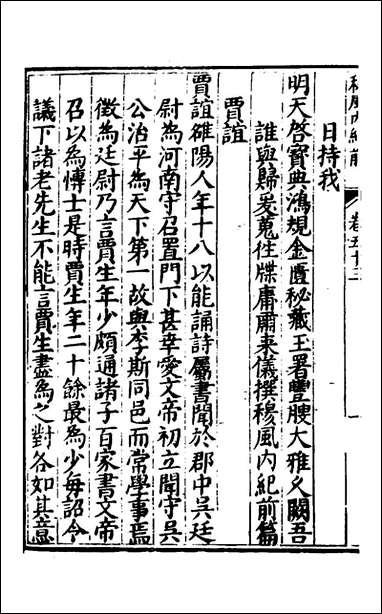 卷五十三
日持我
明天啓寶典鴻規金匱秘藏玉署豐腴大雅乆闕吾
誰與歸爰蒐徃牒庸肅來儀撰穆風內紀前篇
賈誼
賈誼雒陽人年十八以能誦詩屬書聞於郡中吳廷
尉為河南守召置門下甚幸愛文帝初立聞守吳
公治平為天下第一故與李斯同邑而常學事焉
徵為廷尉乃言賈生年少頗通諸子百家書文帝
召以為慱士是時賈生年二十餘最為少每詔令
議下諸老先生不能言賈生盡為之對各如其意